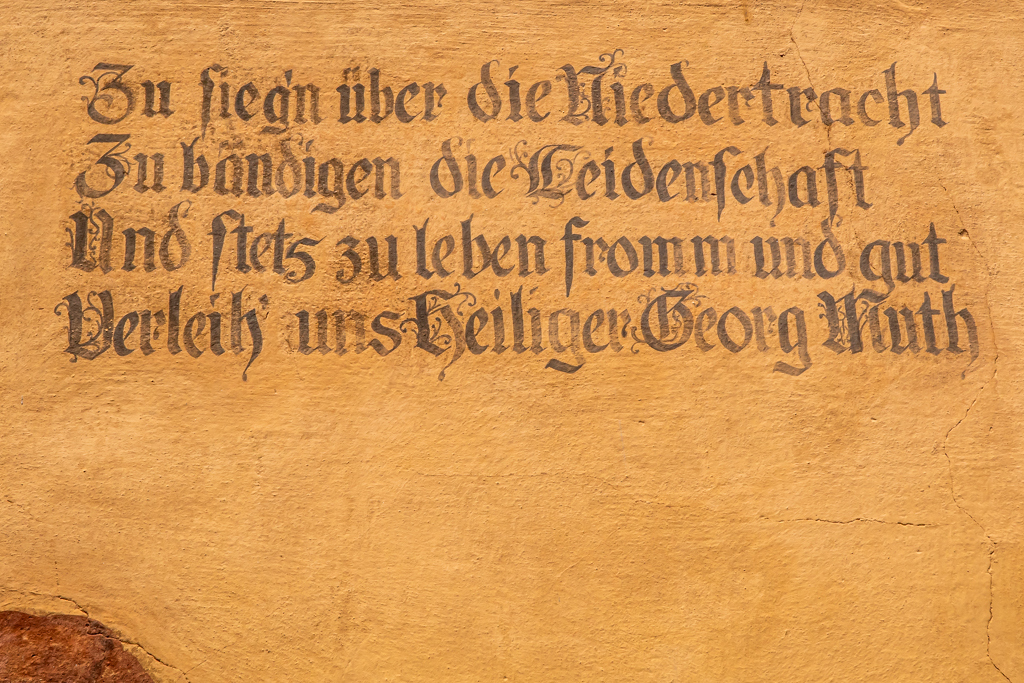 Zu sieg'n über die Niedertracht
Zu bändigen die Leidenschaft
Und stets zu leben fromm und gut
Verleih' uns Heiliger Georg Muth